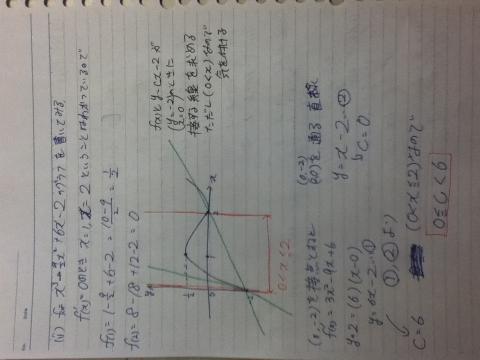 (ii) f(x) = x³ - 9/2x² + 6x - 2 のグラフを書いてみる
f'(x) = 0のとき x = 1, x = 2 ということはわかっているので
f(1) = 1 - 9/2 + 6 - 2 = (10-9)/2 = 1/2
f(2) = 8 - 18 + 12 - 2 = 0
y
1/2
0
1
2
x
-2
0<x≦2
f(x)と y=cx-2 が
(y=-2)のときに
x=0
接する線を求める
ただし(0<x)なので
気を付ける
(0,-2)を接点とすると
f'(x) = 3x² - 9x + 6
y+2 = (6)(x-0)
y = 6x - 2 …①
(0,-2)
を通る直線
y = x - 2 …②
↳ C = 0
①, ②より
C = 6
(0<x≦2)なので
0≦C<6